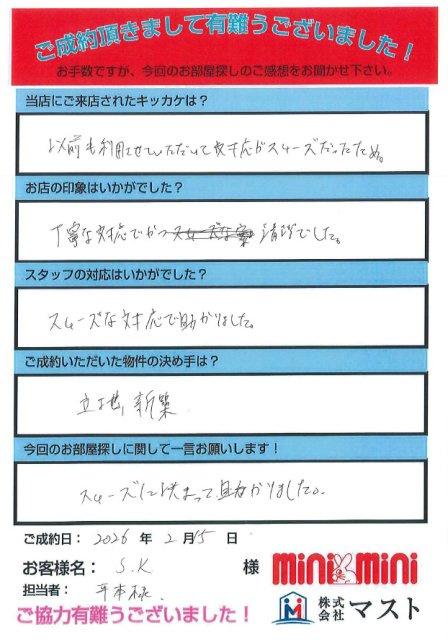 ご成約頂きまして有難うございました！
お手数ですが、今回のお部屋探しのご感想をお聞かせ下さい。
当店にご来店されたキッカケは？
以前も利用させていただいて対応がスムーズだったため。
お店の印象はいかがでした？
丁寧な対応でかつ 清潔でした。
スタッフの対応はいかがでした？
スムーズな対応で助かりました。
ご成約いただいた物件の決め手は？
立地、新築
今回のお部屋探しに関して一言お願いします！
スムーズに決まって助かりました。
ご成約日： 2026 年 2 月 15 日
お客様名： S.K 様
mini mini
担当者： 平本様
株式会社 マスト
ご協力有難うございました！